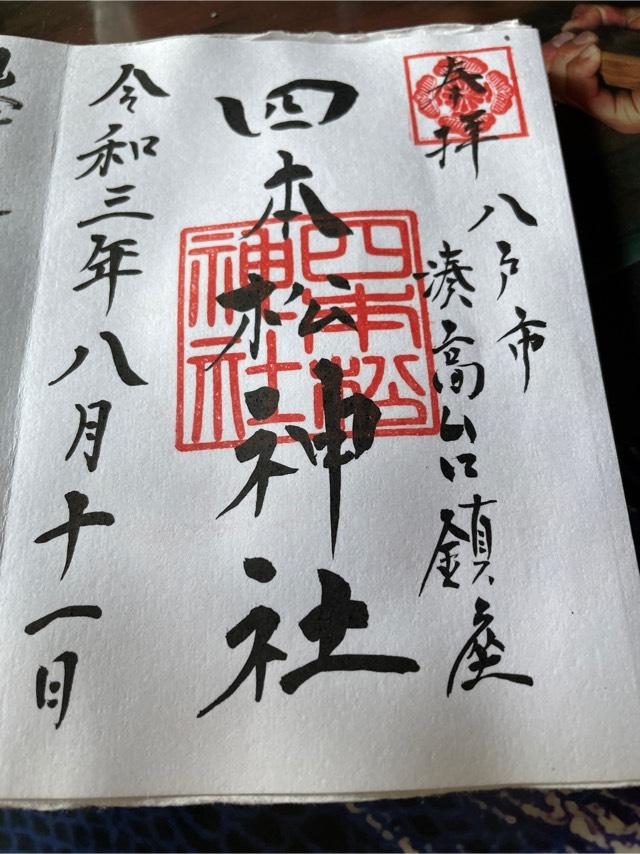 奉拝
八戸市
湊高台鎮座
四本松神社
四本松
神社
令和三年八月十一日